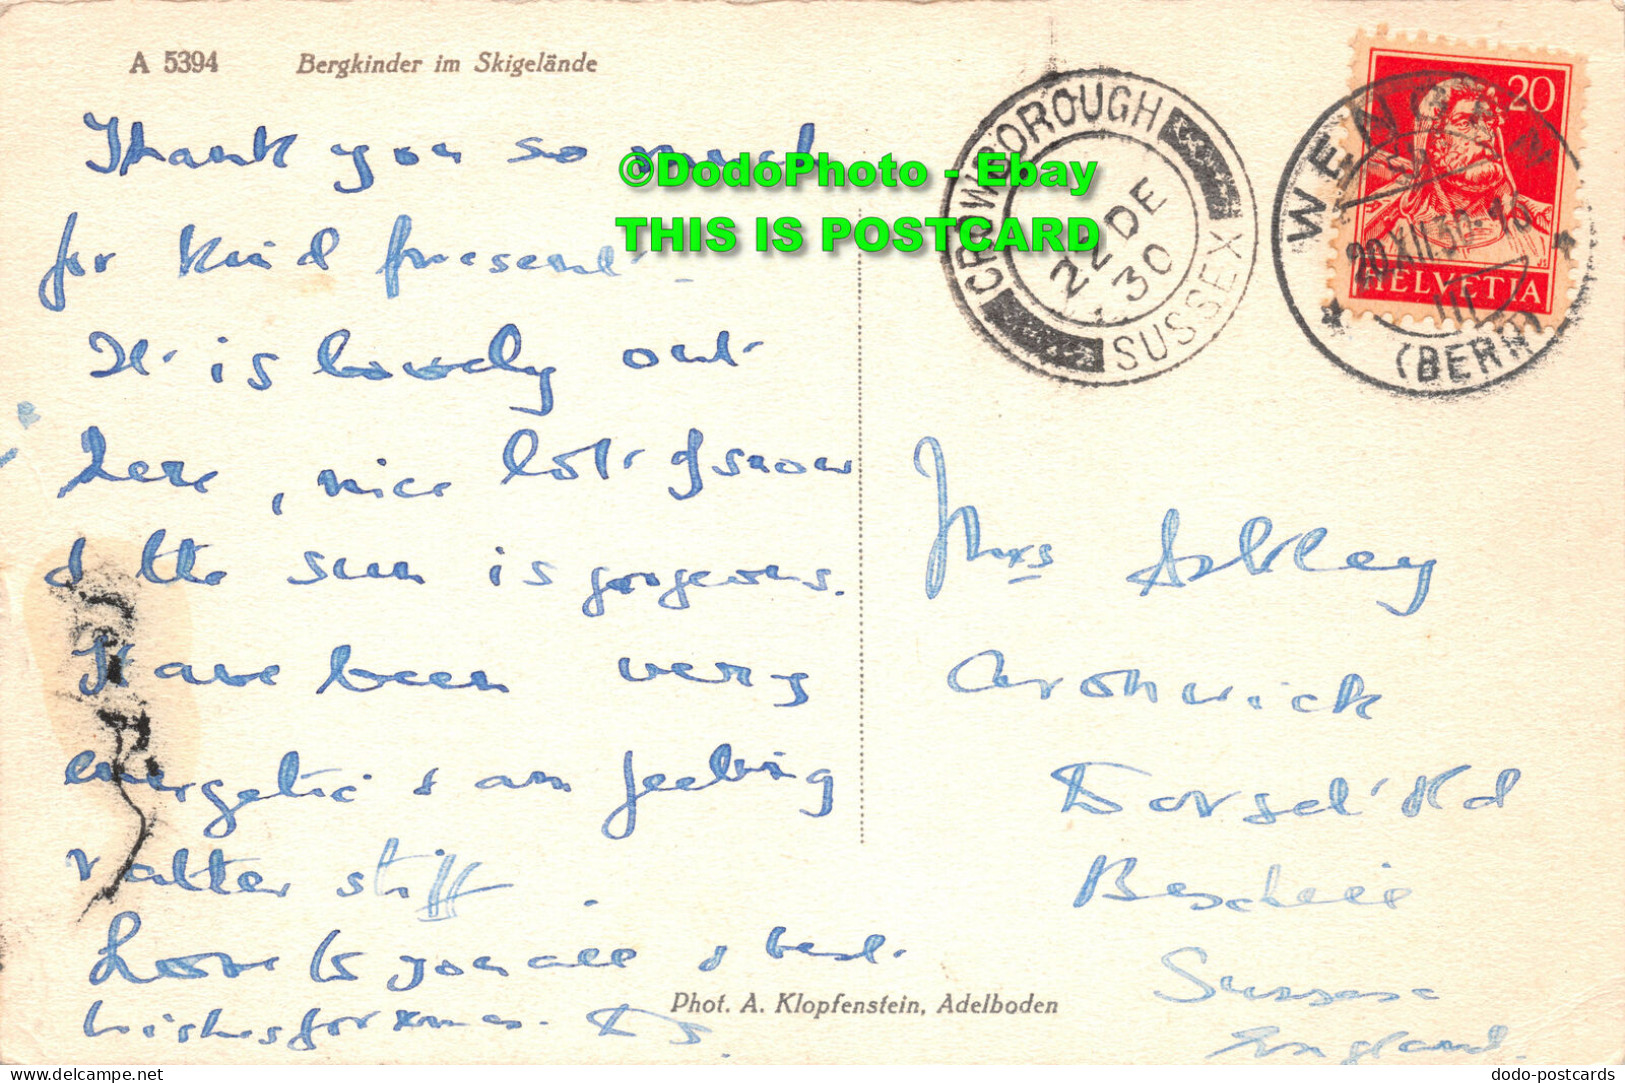 A 5394 Bergkinder im Skigelände
Thank you so much
for kind present
It is lovely out
here, nice lot of snow
& the sun is gorgeous.
Have been very
energetic & am feeling
rather stiff.
Love to you all & best
wishes for xmas.
Phot. A. Klopfenstein, Adelboden
©DodoPhoto - Ebay
THIS IS POSTCARD
CROWBOROUGH
22 DE
30
SUSSEX
WENGEN
20.XII.30.16
III
(BERN)
20
HELVETIA
Mrs
Dorset Rd
Bexhill
Sussex
England.
dodo-postcards.delcampe.net
dodo-postcards